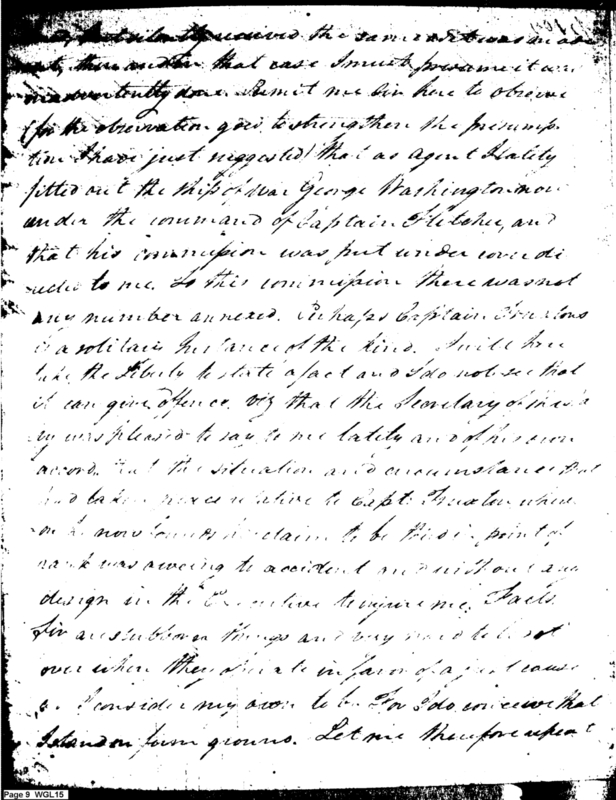 but silently received the same as it was made
out, then and in that case I must presume it was
inadvertently done. Permit me Sir here to observe
(for the observation goes to strengthen the presump-
tion I have just suggested) that as agent I lately
fitted out the Ship of War George Washington now
under the command of Captain Fletcher, and
that his commission was put under cover di
rected to me. To this commission there was not
any number annexed. Perhaps Captain Truxtons
is a solitary Instance of the kind. I will here
take the Liberty to state a fact and I do not see that
it can give offence, viz that the Secretary of the Na
vy was pleased to say to me lately and of his own
accord, that the situation and circumstance that
had taken place relative to Capt. Truxton, where
on he now founds his claim to be third in point of
rank was oweing to accident and without any
design in the Executive to injure me. Facts
Sir are stubborn things and very hard to be got
over when they operate in favor of a just cause
as I consider my own to be. For I do conceive that
I stand on firm ground. Let me therefore repeat
Page 9 WGL15